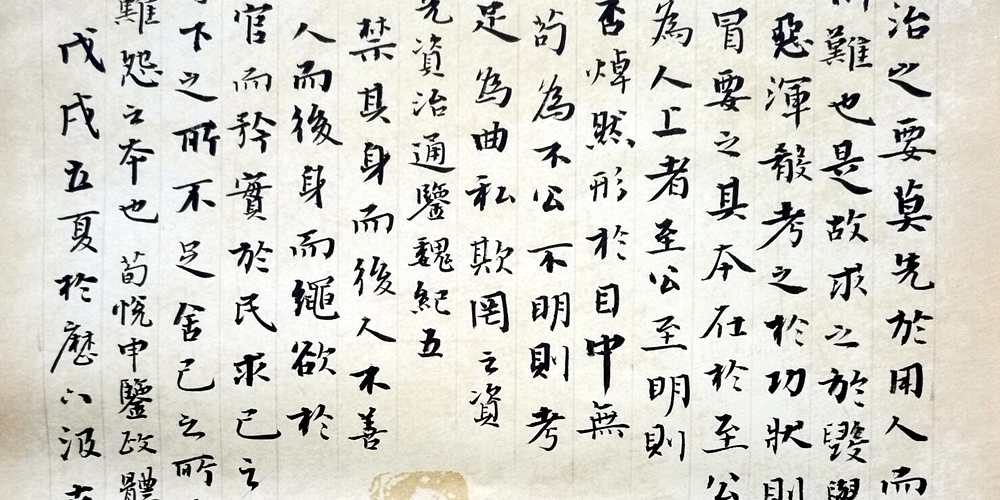 治之要莫先於用人而
難也是故求之於毀譽
惡渾殽考之於功狀則
冒要之其本在於至公
為人上者至公至明則
否焯然形於目中無
苟為不公不明則考
足為曲私欺罔之資
資治通鑒魏紀五
禁其身而後人不善
人而後身而繩欲於
官而矜實於民求己之
下之所不足舍己之所
難怨之本也荀悅申鑒政體
戊戌五夏於歷六汲